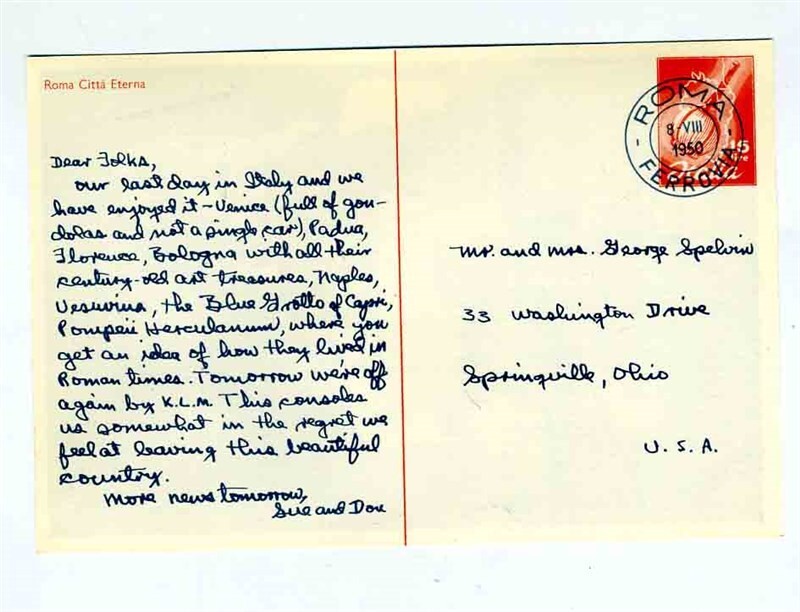 Roma Città Eterna
Dear Folks,
our last day in Italy and we
have enjoyed it - Venice (full of gon-
dolas and not a single car), Padua,
Florence, Bologna with all their
century-old art treasures, Naples,
Vesuvius, the Blue Grotto of Capri,
Pompeii Herculanum, where you
get an idea of how they lived in
Roman times. Tomorrow we're off
again by K.L.M. This consoles
us somewhat in the regret we
feel at leaving this beautiful
country.
More news tomorrow,
Sue and Don
ROMA
8-VIII
1950
FERROVIA
Mr. and Mrs. George Spelvin
33 Washington Drive
Springville, Ohio
U.S.A.